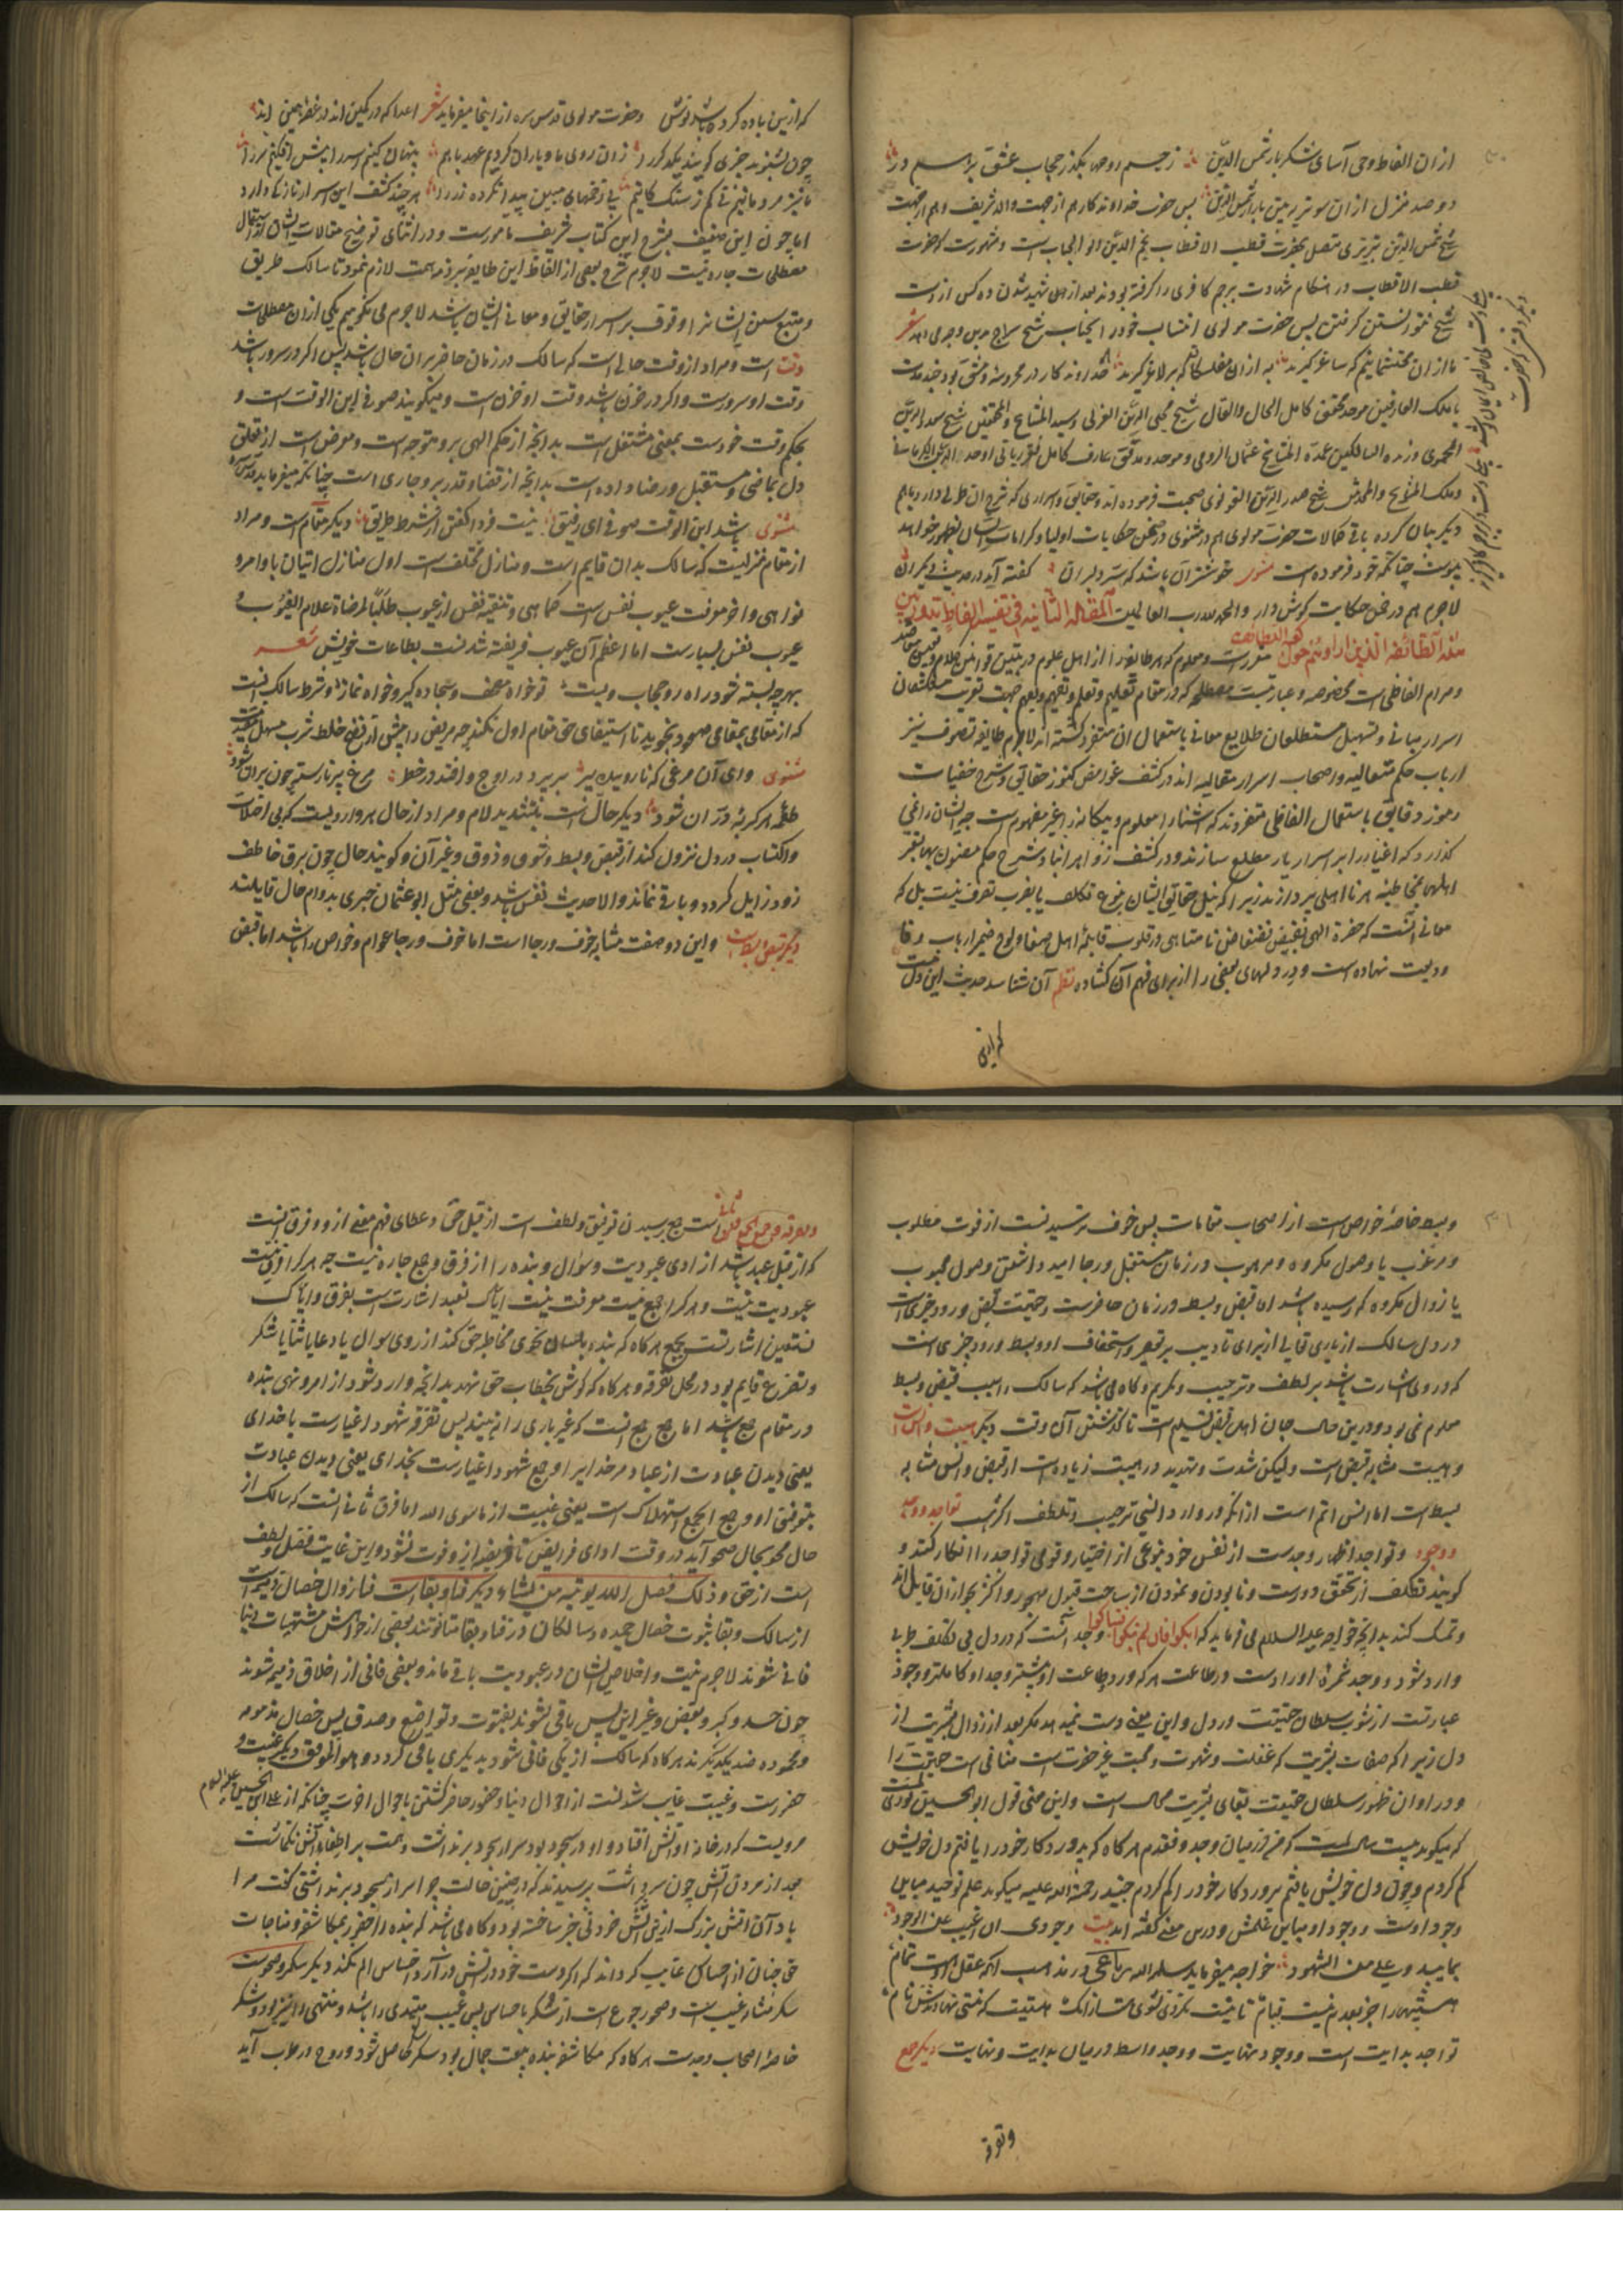 از ان الفاظ وحی آسای شکر بار شمس الدین ز جسم روحها یکذر حجاب عشق بر اسم در
دو صد منزل از ان سوتر ببین بازار شمس الدین پس حضرت خداوندکار هم از جهت والد شریف و هم از جهت
شیخ شمس الدین تبریزی متصل بحضرت قطب الاقطاب نجم الدین ابو الجناب است و مشهورست که حضرت
قطب الاقطاب در هنکام شهادت پرچم کافری را کرفته بودند بعد از شهید شدن ده کس از دست
شیخ نتوانستن کرفتن پس حضرت مولوی انتساب خود را بجناب شیخ
ما از ان محتشمانیم که ساغر کیرند نه از ان مفلسکان که بز لاغر کیرند خداوندکار در محروسه دمشق بود چند مدت
با ملک العارفین موحد محقق کامل الحال والقال شیخ محیی الدین العربی و سید المشایخ والمحققین شیخ سعد الدین
الحموی و زبده السالکین عمدة المشایخ عثمان الرومی و موحد مدقق عارف کامل فقیر ربانی اوحد الدین الکرمانی
و ملک المشایخ والمحدثین شیخ صدر الدین القونوی صحبت فرموده اند و حقایق و اسراری که شرح ان طولی دارد باهم
دیکر بیان کرده باقی کمالات حضرت مولوی هم در مثنوی در ضمن حکایات اولیا و کرامات ایشان بظهور خواهد
پیوست چنانکه خود فرموده است مثنوی خوشتر آن باشد که سر دلبران کفته آید در حدیث دیکران
لاجرم هم در ضمن حکایت کوش دار والحمد لله رب العالمین المقالة الثانیة فی تفسیر الفاظ تدور بین
هذه الطائفة مقررست و معلوم که هر طایفه را از اهل علوم در تبیین قوانین کلام و تعیین مقاصد
و مرام الفاظی است مخصوصه و عباراتیست مصطلحه که در مقام تعلیم و تعلم و تفهیم و تفهم جهت تقویت مستکشفان
اسرار مبانی و تسهیل مستطلعان طلایع معانی باستعمال ان متفرد کشته اند لاجرم طایفه تصوف نیز
ارباب حکم متعالیه و اصحاب اسرار متعالیه اند در کشف غوامض کنوز حقایق و شرح خفیات
رموز دقایق باستعمال الفاظی متفردند که اشنا را معلوم و بیکانه را غیر مفهوم است چه ایشان را غیرت
نکذارد که اغیار را بر اسرار یار مطلع سازند و در کشف
اهلها بمخاطبه هر نا اهلی پردازند زیرا که نیل حقایق ایشان بنوع تکلف یا بضرب تصرف نیست بل که
معانی است که حضرة الهی بفیض فضل نا متناهی در قلوب قابله اهل صفا و لوح ضمیر ارباب وفا
ودیعت نهاده است و در دلهای بعضی را از برای فهم آن کشاده نظم آن شناسد حدیث این دل مست
که ازین
که ازین باده کرده باشد نوش و حضرت مولوی قدس سره از اینجا میفرماید شعر اعدا که در کمین اند در غصه همین اند
چون بشنوند چیزی کویند یکدکر را زان روی ما و یاران کردیم عهد باهم پنهان کنیم سر را پیش افکنیم سر را
ما نیز مردمانیم نی کم ز سنک کانیم بی زخمهای میتین پیدا نکرده زر را هر چند کشف این اسرار نازکی دارد
اما چون این ضعیف بشرح این کتاب شریف مامورست و در اثنای توضیح مقالات ایشان از استعمال
مصطلحات چاره نیست لاجرم شرح بعضی از الفاظ این طایفه بر ذمه همت لازم نمود تا سالک طریق
و متبع سنن ایشان را وقوف بر اسرار حقایق و معانی ایشان باشد لاجرم می کوییم یکی از ان مصطلحات
وقت است و مراد از وقت حالی است که سالک در زمان حاضر بران حال باشد پس اکر در سرور باشد
وقت او سرورست و اکر در حزن باشد وقت او حزن است و میکویند صوفی ابن الوقت است و
بحکم وقت خودست بمعنی مشتغل است بدانچه از حکم الهی برو متوجه است و معرض است از تعلق
دل بماضی و مستقبل و رضا داده است بدانچه از قضا و قدر برو جاری است چنانکه میفرماید قدس سره
مثنوی باشد ابن الوقت صوفی ای رفیق نیست فردا کفتن از شرط طریق دیکر مقام است و مراد
از مقام منزلیست که سالک بدان قایم است و منازل مختلف است اول منازل اتیان باوامر و
نواهی و اخر معرفت عیوب نفس است کما هی و تنقیه نفس از عیوب طلبا لمرضاة علام الغیوب و
عیوب نفس بسیارست اما اعظم آن عیوب فریفته شدنست بطاعات خویش شعر
بهر چه بسته شود راه رو حجاب ویست تو خواه مصحف و سجاده کیر و خواه نماز و شرط سالک انست
که از مقامی بمقامی صعود نجوید تا استیفای حق مقام اول نکند چه مریض را پیش از نضج خلط شرب مسهل
مثنوی وای آن مرغی که ناروییده پر بر پرد در اوج و افتد در خطر مرغ پر نارسته چون پران شود
طعمه هر کربه دران شود دیکر حال است بتشدید لام و مراد از حال هر واردیست که بی اختلاب
و اکتساب در دل نزول کند از قبض و بسط و شوق و ذوق و غیر آن و کویند حال چون برق خاطف
زود زایل کردد و باقی نماند و الا حدیث نفس باشد و بعضی مثل ابو عثمان حیری بدوام حال قایلند
دیکر قبض و بسط است و این دو صفت مشابه خوف و رجا است اما خوف و رجا عوام و خواص را باشد اما قبض
و بسط خاصه خواص است از اصحاب مقامات پس خوف ترسیدنست از فوت مطلوب
و مرغوب یا وصول مکروه و مرهوب در زمان مستقبل و رجا امید داشتن وصول محبوب
یا زوال مکروه که رسیده باشد اما قبض و بسط در زمان حاضرست و حقیقت قبض ورود چیزی است
در دل سالک از باری تعالی از برای تادیب بر تقصیر و استخفاف او و بسط ورود چیزی است
که در وی اشارت باشد بر لطف و ترحیب و تکریم و کاه می باشد که سالک را سبب قبض و بسط
معلوم نمی بود و درین حال جان اهل قبض تسلیم است تا کذشتن آن وقت دیکر هیبت و انس است
و هیبت مشابه قبض است و لیکن شدت و تهدید در هیبت زیاده است از قبض و انس مشابه
بسط است اما انس اتم است از انکه در وارد انسی ترحیب و تلطف اکثرست تواجد و وجد
و وجود و تواجد اظهار وجدست از نفس خود بنوعی از اختیار و قومی تواجد را انکار کنند و
کویند تکلف از تحقق دورست و نابودن و نمودن از ساحت قبول مهجور و اکثر بجواز ان قایل اند
و تمسک کنند بدانچه خواجه علیه السلام می فرماید که ابکوا فان لم تبکوا فتباکوا وجد آنست که در دل بی تکلف طریی
وارد شود و وجد ثمرهٔ اورادست و طاعت هر که ورد و طاعت او بیشتر وجد او کاملتر و وجود
عبارتست از ثبوت سلطان حقیقت در دل و این معنی دست نمیدهد مکر بعد از زوال بشریت از
دل زیرا که صفات بشریت که غفلت و شهوت و محبت غیر حضرت است منافی است حقیقت را
و در اوان ظهور سلطان حقیقت بقای بشریت محال است و این معنی قول ابو الحسین نوری است
که میکوید بیست سال است که من در میان وجد و فقدم هر کاه که پروردکار خود را یافتم دل خویش
کم کردم و چون دل خویش یافتم پروردکار خود را کم کردم جنید رحمة الله علیه میکوید علم توحید مباین
وجود اوست و وجود او مباین علمش و درین معنی کفته اند بیت وجودی ان اغیب عن الوجود
بما یبدو علی من الشهود خواجه میفرماید سلمه الله رباعی
تواجد بدایت است و وجود نهایت و وجد واسطه در میان بدایت و نهایت دیکر جمع
و تفرقه
جمع رسیدن توفیق و لطف است از قبل حق و عطای فهم معنی از و و فرق انست
که از قبل عبد باشد از ادی عبودیت و سؤال و بنده را از فرق و جمع چاره نیست چه هر کرا فرق نیست
عبودیت نیست و هر کرا جمع نیست معرفت نیست ایاک نعبد اشارت است بفرق و ایاک
نستعین اشارتست بجمع هر کاه که بنده بلسان نجوی مخاطبه حق کند از روی سوال یا دعا یا ثنا یا شکر
و تضرع قایم بود در محل تفرقه و هر کاه که کوش بخطاب حق نهد بدانچه وارد شود از امر و نهی بنده
در مقام جمع باشد اما جمع جمع انست که غیر باری را نه بیند پس تفرقه شهود اغیارست با خدای
یعنی دیدن عبادت از عباد مر خدایرا و جمع شهود اغیارست بخدای یعنی دیدن عبادت
بتوفیق او و جمع الجمع استهلاک است یعنی غیبت از ما سوی الله اما فرق ثانی انست که سالک از
حال محو بحال صحو آید در وقت ادای فرایض تا فریضه از و فوت نشود و این غایت فضل و لطف
است از حق و ذلک فضل الله یؤتیه من یشاء دیکر فنا و بقا است فنا زوال خصال ذمیمه است
از سالک و بقا ثبوت خصال حمیده و سالکان در فنا و بقا متفاوتند بعضی از خواهش مشتهیات دنیا
فانی شوند لاجرم نیت و اخلاص ایشان در عبودیت باقی ماند و بعضی فانی از اخلاق ذمیمه شوند
چون حسد و کبر و بغض و غیر این پس باقی شوند بفتوت و تواضع و صدق پس خصال مذمومه
و محموده ضد یکدیکرند هر کاه که سالک از یکی فانی شود بدیکری باقی کردد و هو الموفق دیکر غیبت و
حضورست و غیبت غایب شدنست از احوال دنیا و حضور حاضر کشتن باحوال اخرت چنانکه از علی بن الحسین علیه السلام
مرویست که در خانه او اتش افتاد و او در سجود بود سر از سجود بر نداشت و همت بر اطفاء آتش نکماشت
بعد از مردن آتش چون سر برداشت پرسیدند که در چنین حالت چرا سر از سجود بر نداشتی کفت مرا
یاد آن آتش بزرک ازین آتش خود بی خبر ساخته بود و کاه می باشد که بنده را حضور بمکاشفه و مناجات
حق چنان از احساس غایب کرداند که اکر دست خود در آتش در آرد احساس الم نکند دیکر سکر و صحوست
سکر مشابه غیبت است و صحو رجوع است از سکر باحساس پس غیبت مبتدی را باشد و منتهی را نیز بود و سکر
خاصهٔ اصحاب وجدست هر کاه که مکاشفه بنده بنعت جمال بود سکر حاصل شود و روح در طرب آید